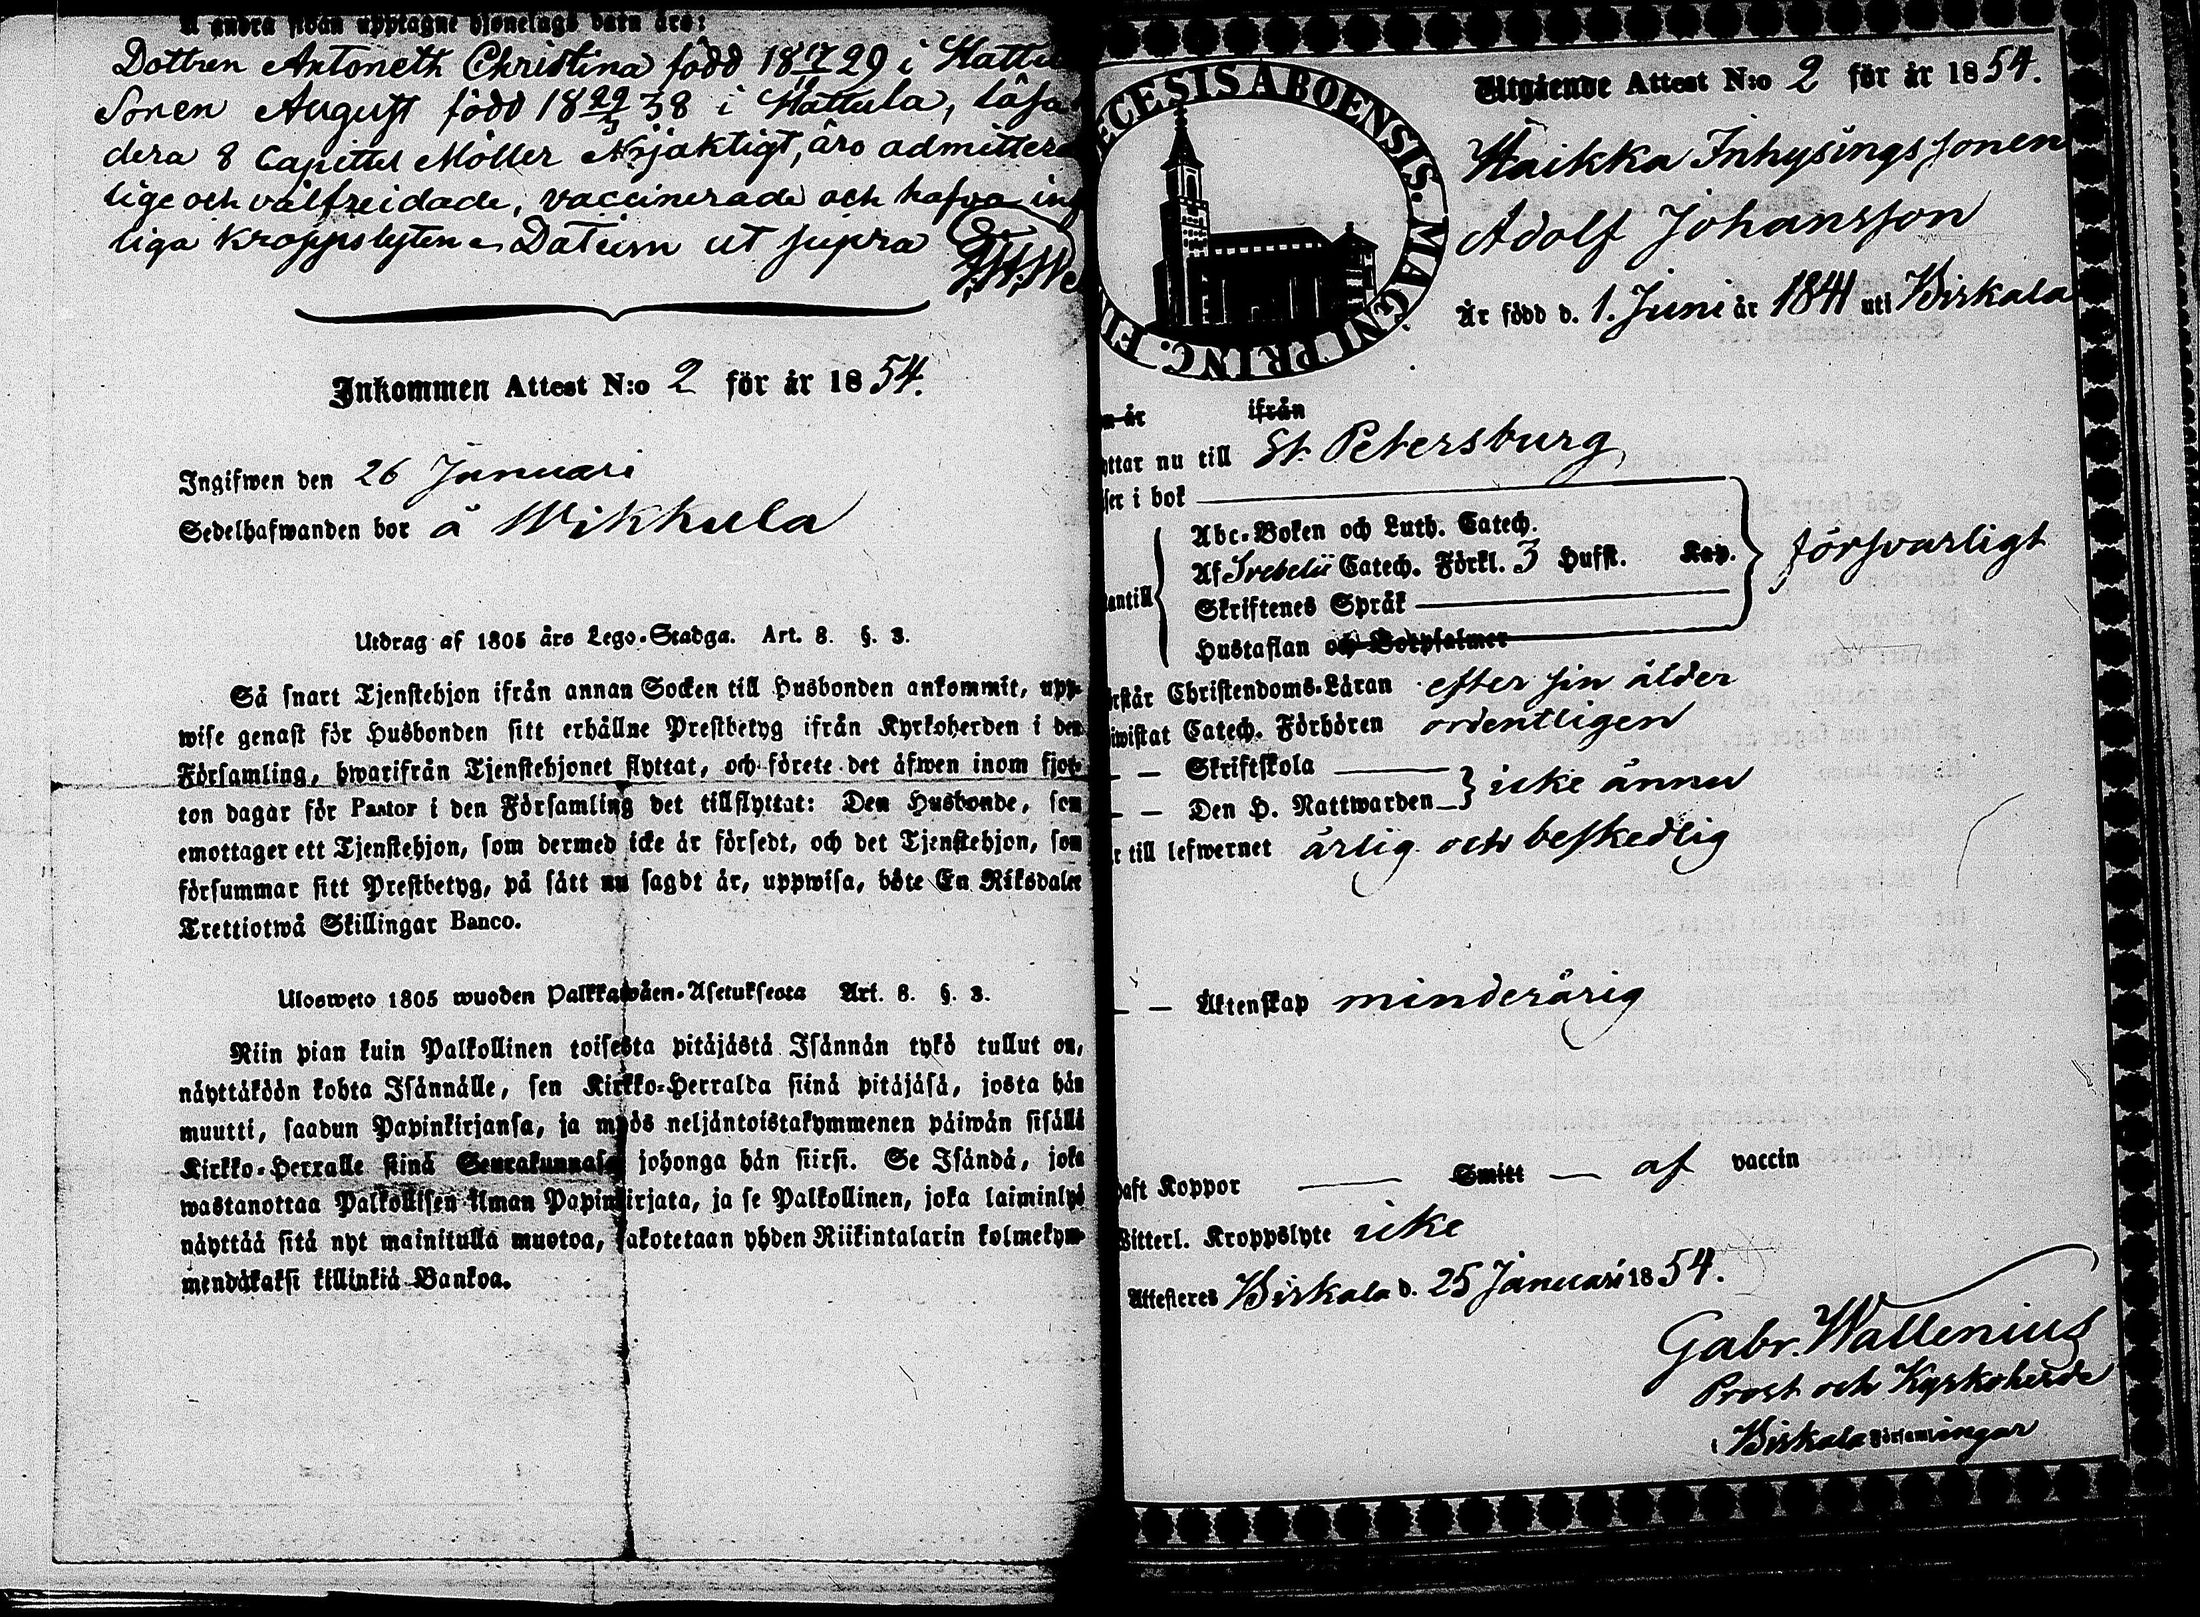 andra sidan upptagne hjonelags barn äro:
Dottren Antoneth Christina född 18 17/11 29 i Hattu
Sonen August född 18 22/3 38 i Hattula, läsa
dera 8 Capittel Möller Nöjaktigt, äro admittera
lige och välfreidade, vaccinerade och hafva ing
liga kroppslyten. Datum ut supra
Inkommen Attest N:o 2 för år 1854.
Ingifwen den 26 Januari
Sedelhafwanden bor å Wikkula
Utdrag af 1805 års Lego-Stadga. Art. 8. §. 3.
Så snart Tjenstehjon ifrån annan Socken till Husbonden ankommit, upp-
wise genast för Husbonden sitt erhållne Prestbetyg ifrån Kyrkoherden i den
Församling, hwarifrån Tjenstehjonet flyttat, och förete det äfwen inom fjor-
ton dagar för Pastor i den Församling det tillflyttat: Den Husbonde, som
emottager ett Tjenstehjon, som dermed icke är försedt, och det Tjenstehjon, som
försummar sitt Prestbetyg, på sätt nu sagdt är, uppwisa, böte En Riksdaler
Trettiotwå Skillingar Banco.
Ulosweto 1805 wuoden Palkkawäen-Asetuksesta Art. 8. §. 3.
Niin pian kuin Palkollinen toisesta pitäjästä Isännän tykö tullut on,
näyttäköön kohta Isännälle, sen Kirkko-Herralda siinä pitäjäsä, josta hän
muutti, saadun Papinkirjansa, ja myös neljäntoistakymmenen päiwän sisällä
Kirkko-Herralle siinä Seurakunnasa johonga hän siirsi. Se Isändä, joka
wastanottaa Palkollisen ilman Papinkirjata, ja se Palkollinen, joka laiminlyö
näyttää sitä nyt mainitulla muotoa, sakotetaan yhden Riikintalarin kolmekym-
mendäkaksi killinkiä Bankoa.
ECESIS ABOENSIS. MAGNI PRINC. FIN
Utgående Attest N:o 2 för år 1854.
Haikka Inhysingssonen
Adolf Johansson
Är född d. 1. Juni år 1841 uti Birkala
n år ifrån
yttar nu till St. Petersburg
ser i bok
Abc-Boken och Luth. Catech.
Af Svebelii Catech. Förkl. 3 Hufst. Kap.
antill försvarligt
Skriftenes Språk
Hustaflan och Botpsalmer
rstår Christendoms-Läran efter sin ålder
iwistat Catech. Förhören ordentligen
— — Skriftskola
— — Den H. Nattwarden icke ännu
r till lefwernet ärlig och beskedlig
— — Äktenskap minderårig
haft Koppor — Smitt — af vaccin
Witterl. Kroppslyte icke
Attesteres Birkala d. 25 Januari 1854.
Gabr. Wallenius
Prost och Kyrkoherde
i Birkala Församlingar